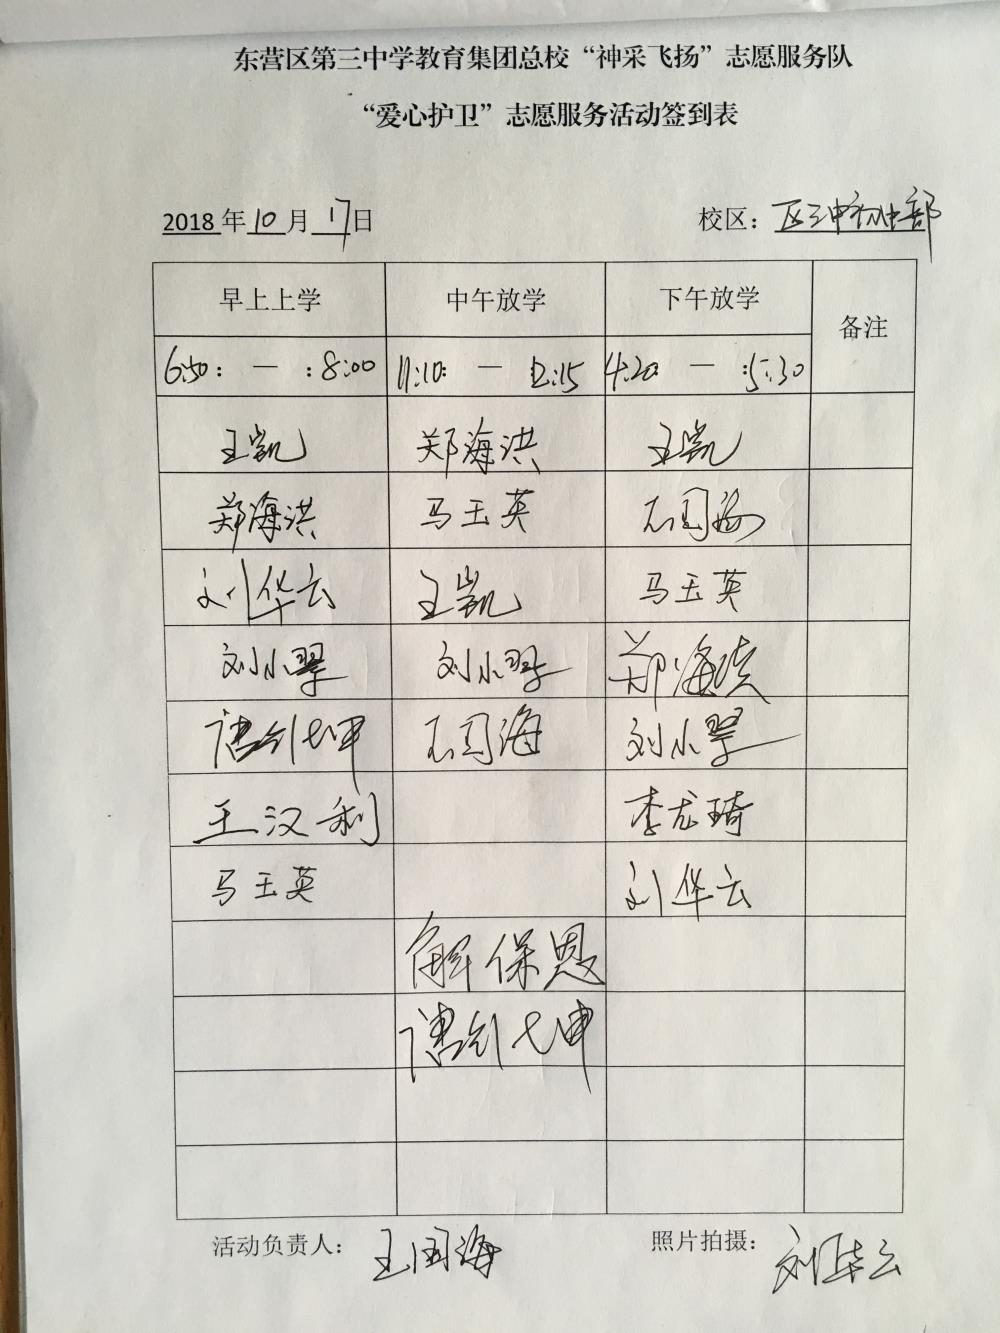 东营区第三中学教育集团总校“神采飞扬”志愿服务队
“爱心护卫”志愿服务活动签到表
2018 年 10 月 17 日 校区： 区三中初中部
早上上学 中午放学 下午放学 备注
6:50: — :8:00 11:10: — 12:15 4:20: — :5:30
王凯 郑海洪 王凯
郑海洪 马玉英 石国海
刘华云 王凯 马玉英
刘小翠 刘小翠 郑海洪
石国海 刘小翠
王汉利 李龙琦
马玉英 刘华云
解保恩
活动负责人： 王国海 照片拍摄： 刘华云